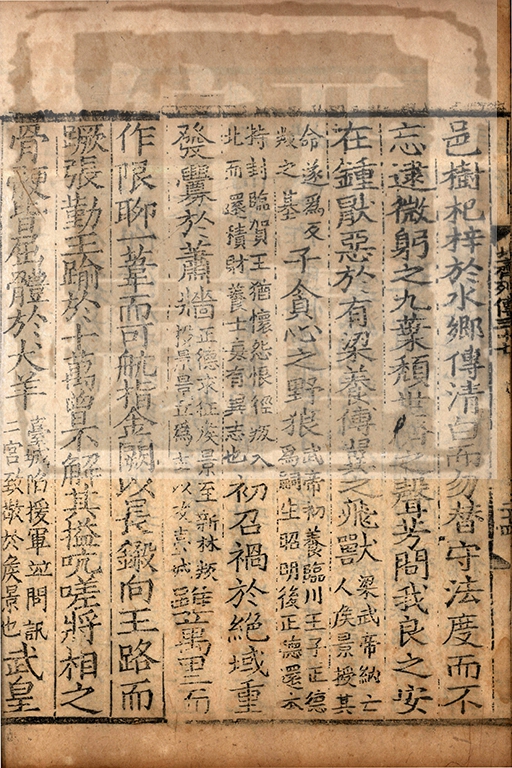 北齊列傳三十七
邑樹杞梓於水鄉傳清白而勿替守法度而不
忘逮微躬之九葉頹世濟之聲芳問我良之安
在鍾猒惡於有梁養傅翼之飛獸梁武帝納亡人侯景授其
命遂爲反叛之基子貪心之野狼武帝初養臨川王子正德爲嗣生昭明後正德還本
特封臨賀王猶懷怨恨徑叛入北而還積財養士每有異志也初召禍於絶域重
發釁於蕭牆正德求征侯景至新林叛投景景立爲主以攻臺城雖萬里而
作限聊一葦而可航指金闕以長鎩向王路而
蹶張勤王踰於十萬曾不解其搤吭嗟將相之
骨鯁皆屈體於犬羊臺城陷援軍並問訊二宮致敬於侯景也武皇